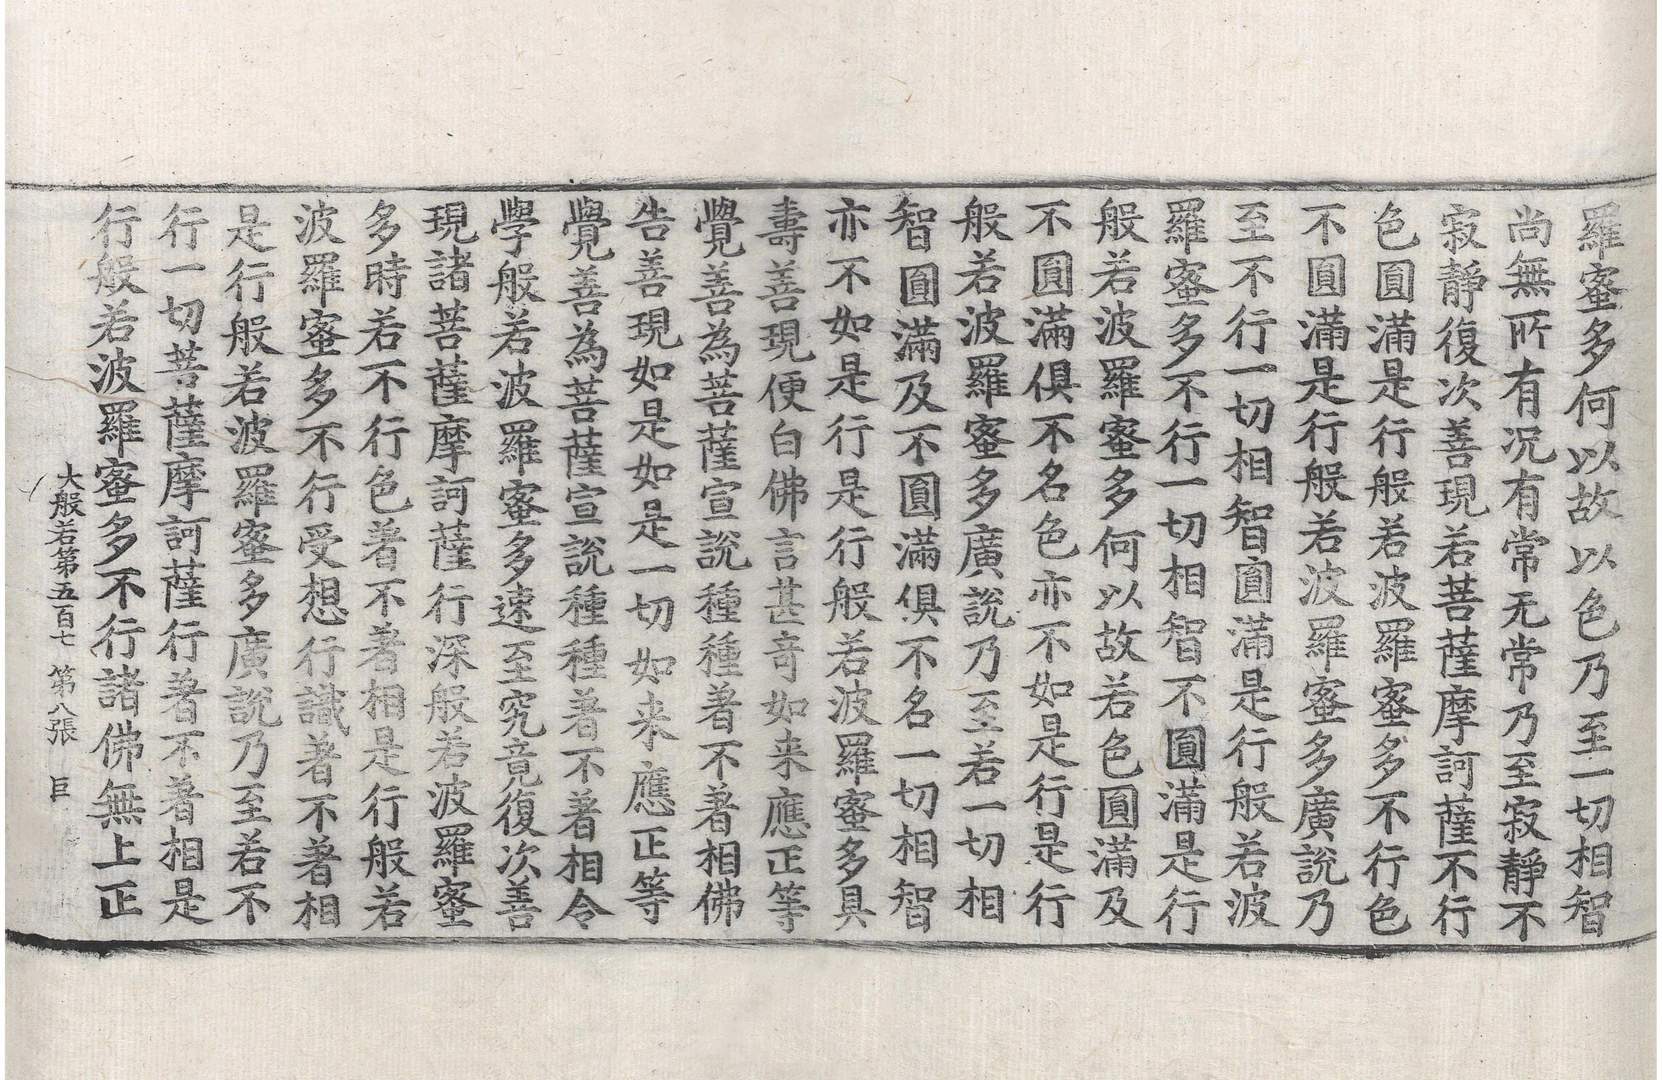 羅蜜多何以故以色乃至一切相智
尚無所有况有常无常乃至寂靜不
寂靜復次善現若菩薩摩訶薩不行
色圓滿是行般若波羅蜜多不行色
不圓滿是行般若波羅蜜多廣說乃
至不行一切相智圓滿是行般若波
羅蜜多不行一切相智不圓滿是行
般若波羅蜜多何以故若色圓滿及
不圓滿俱不名色亦不如是行是行
般若波羅蜜多廣說乃至若一切相
智圓滿及不圓滿俱不名一切相智
亦不如是行是行般若波羅蜜多具
壽善現便白佛言甚奇如来應正等
覺善為菩薩宣說種種著不著相佛
告善現如是如是一切如来應正等
覺善為菩薩宣說種種著不著相令
學般若波羅蜜多速至究竟復次善
現諸菩薩摩訶薩行深般若波羅蜜
多時若不行色著不著相是行般若
波羅蜜多不行受想行識著不著相
是行般若波羅蜜多廣說乃至若不
行一切菩薩摩訶薩行著不著相是
行般若波羅蜜多不行諸佛無上正
大般若第五百七 第八張 巨